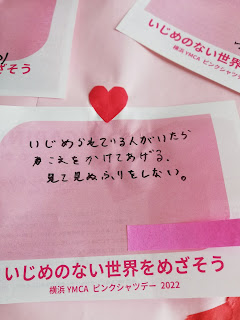 いじめのない世界をめざそう
横浜 YMCA ピンクシャツデー 2022
いじめられている人がいたら
声をかけてあげる。
見て見ぬふりをしない。
いじめのない世界をめざそう
横浜 YMCA ピンクシャツデー 2022